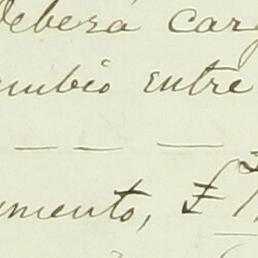 deberá carg
cambio entre
— — —
umento, £